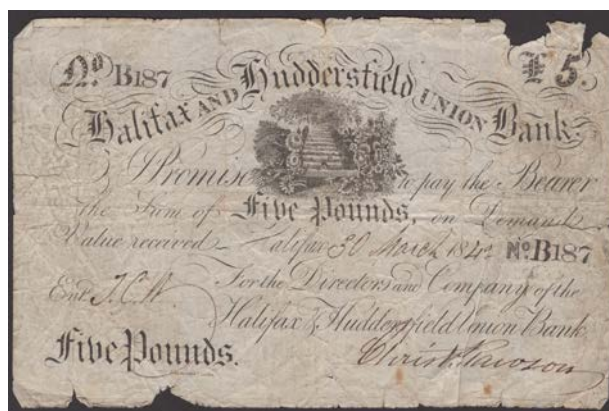 No B187 £5.
Halifax AND Huddersfield UNION Bank.
I Promise to pay the Bearer
the Sum of Five Pounds, on Demand
Value received Halifax 30 March 184 No B187
For the Directors and Company of the
Entd
Halifax & Huddersfield Union Bank
Five Pounds. Christ. Rawson